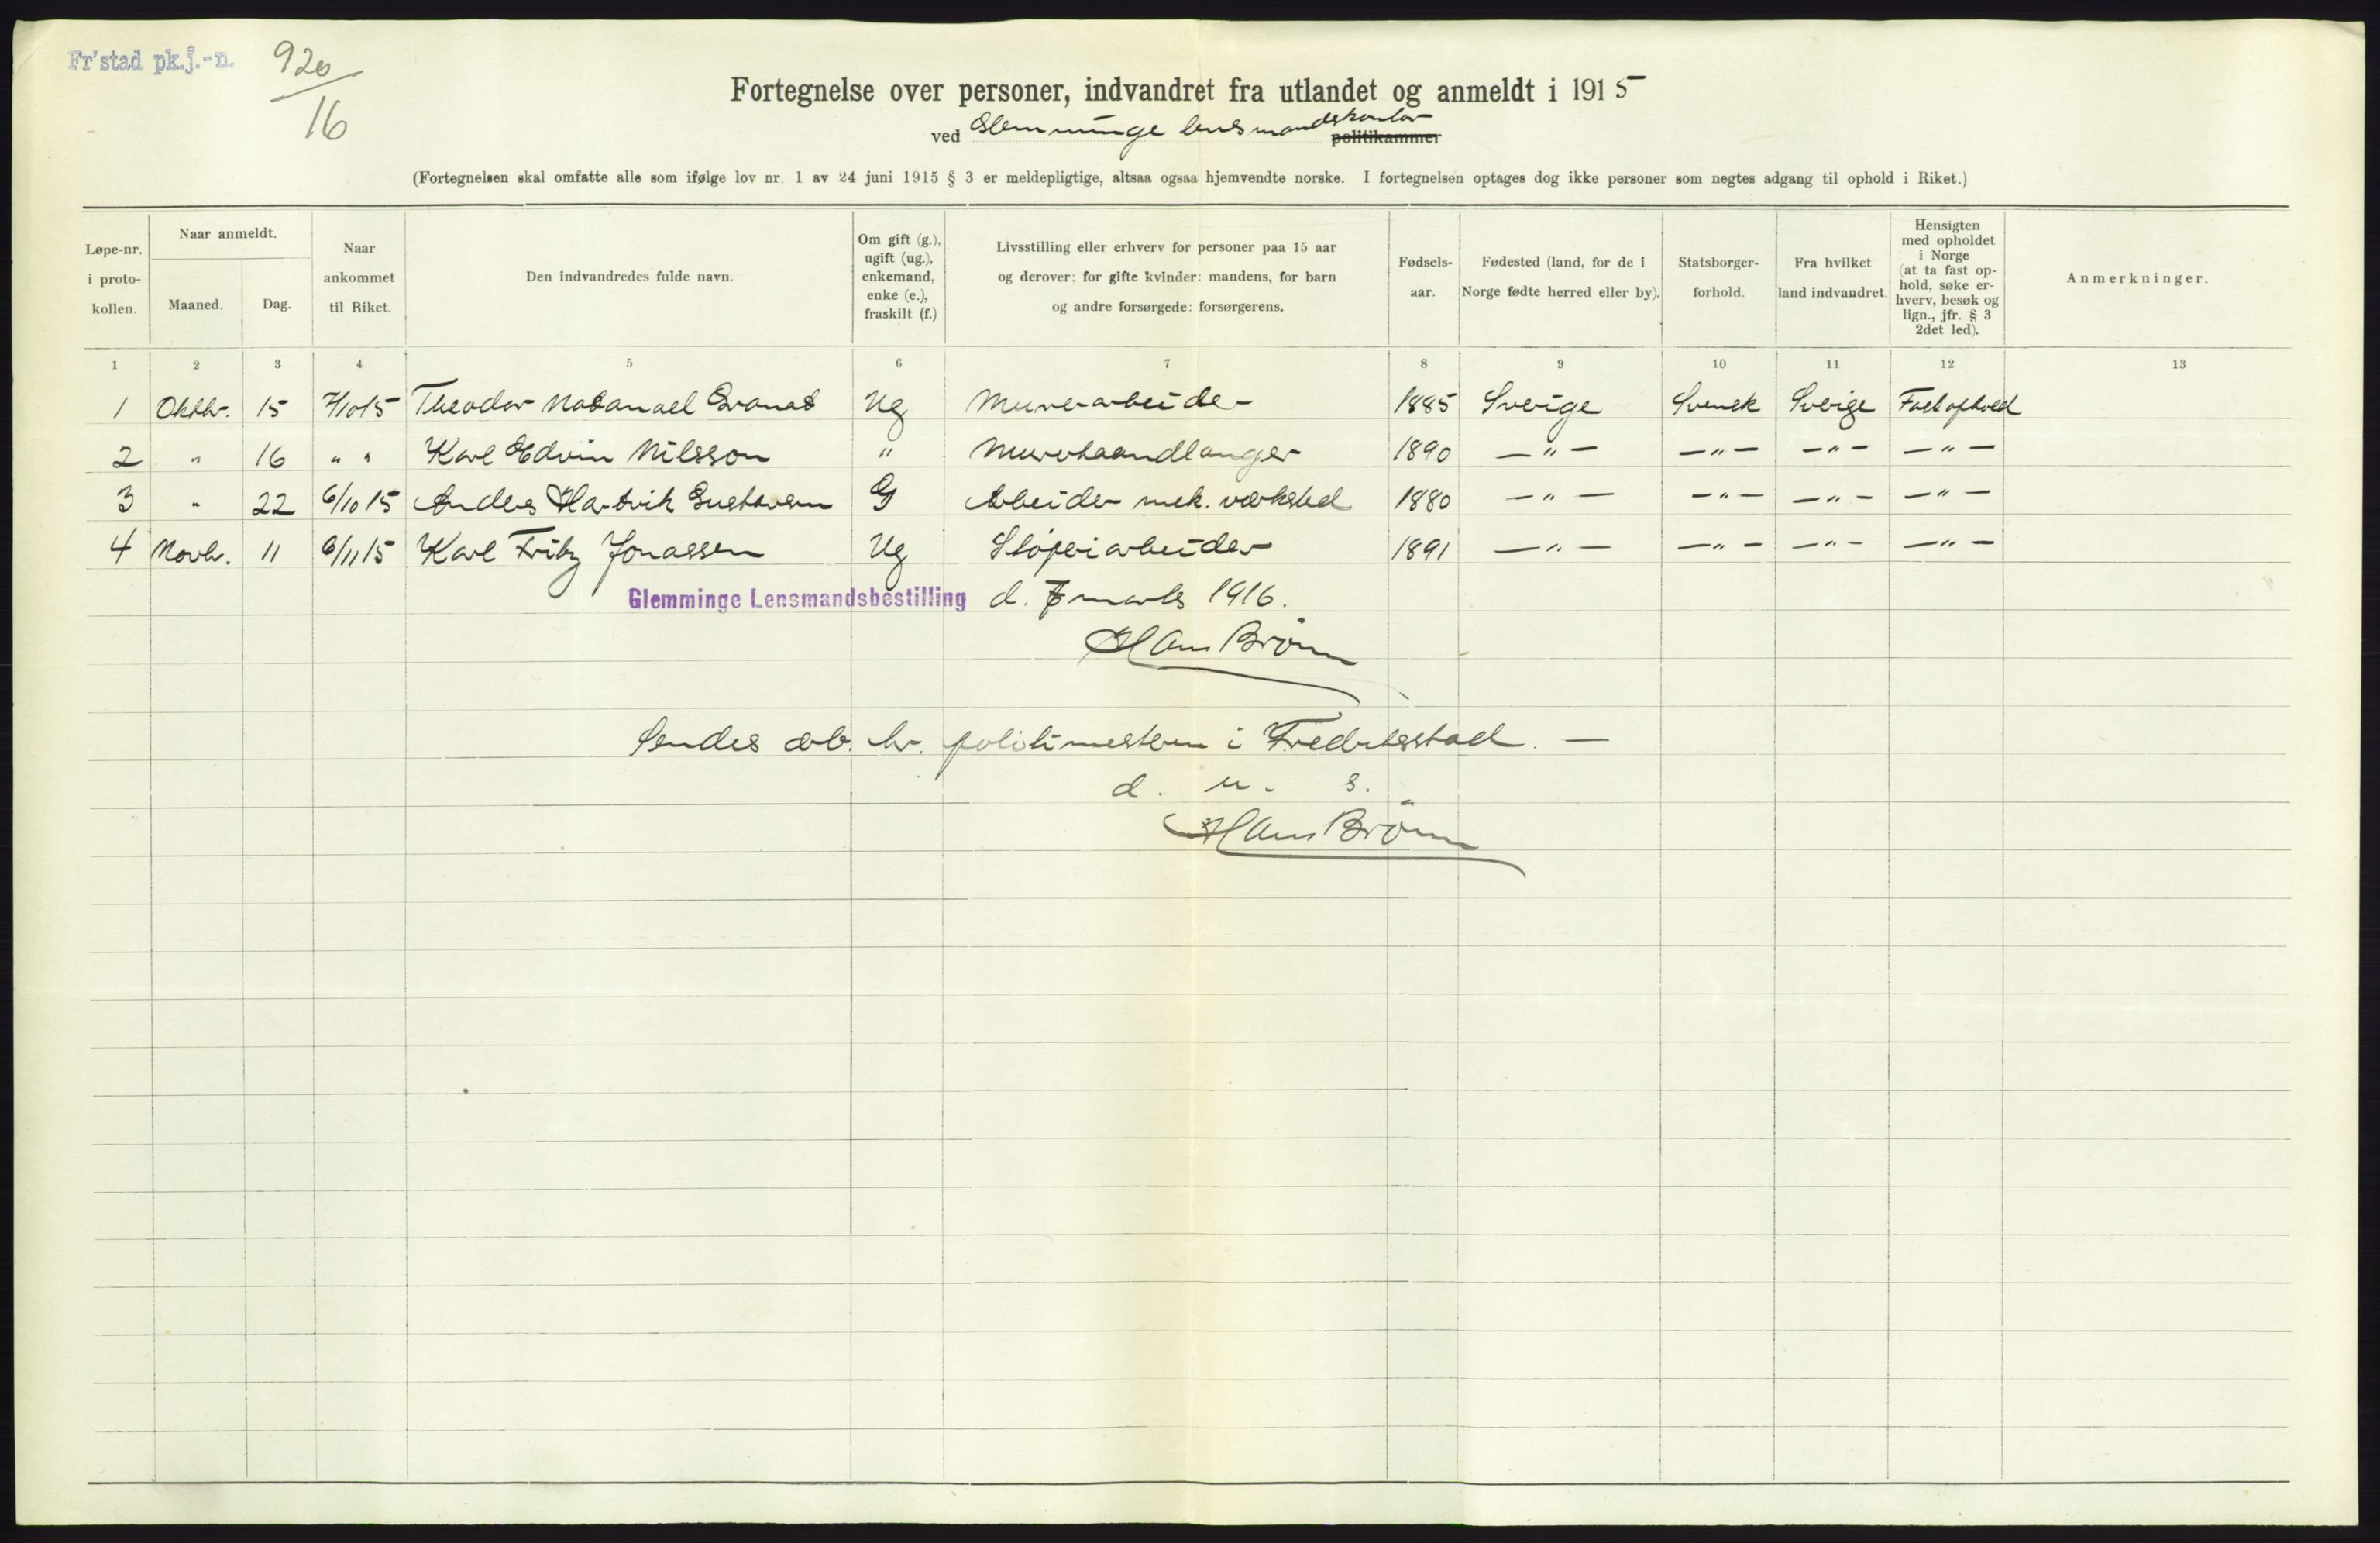 Fr'stad pk.j.-n. 920
16
Fortegnelse over personer, indvandret fra utlandet og anmeldt i 1915
ved Glemminge lensmandskontor politikammer
(Fortegnelsen skal omfatte alle som ifølge lov nr. 1 av 24 juni 1915 § 3 er meldepligtige, altsaa ogsaa hjemvendte norske. I fortegnelsen optages dog ikke personer som negtes adgang til ophold i Riket.)
Løpe-nr. i proto- kollen.
Naar anmeldt.
Maaned. Dag.
Naar ankommet til Riket.
Den indvandredes fulde navn.
Om gift (g.), ugift (ug.), enkemand, enke (e.), fraskilt (f.)
Livsstilling eller erhverv for personer paa 15 aar og derover; for gifte kvinder: mandens, for barn og andre forsørgede: forsørgerens.
Fødsels- aar.
Fødested (land, for de i Norge fødte herred eller by).
Statsborger- forhold.
Fra hvilket land indvandret.
Hensigten med opholdet i Norge (at ta fast op- hold, søke er- hverv, besøk og lign., jfr. § 3 2det led).
Anmerkninger.
1 2 3 4 5 6 7 8 9 10 11 12 13
1 Oktbr. 15 7/10 15 Theodor Natanael Granat Ug Murerarbeider 1885 Sverige Svensk Sverige Fast ophold
2 " 16 " " Karl Edvin Nilsson " Murerhaandlanger 1890 —"— —"— —"— —"—
3 " 22 6/10 15 Anders Hartvik Gustavsen G Arbeider mek. verksted 1880 —"— —"— —"— —"—
4 Novbr. 11 6/11 15 Karl Fritz Jonassen Ug Støperiarbeider 1891 —"— —"— —"— —"—
Glemminge Lensmandsbestilling d. 7 marts 1916.
Hans Brønn
Sendes ærb. hr. politimesteren i Fredriksstad. —
d. u. s.
Hans Brønn